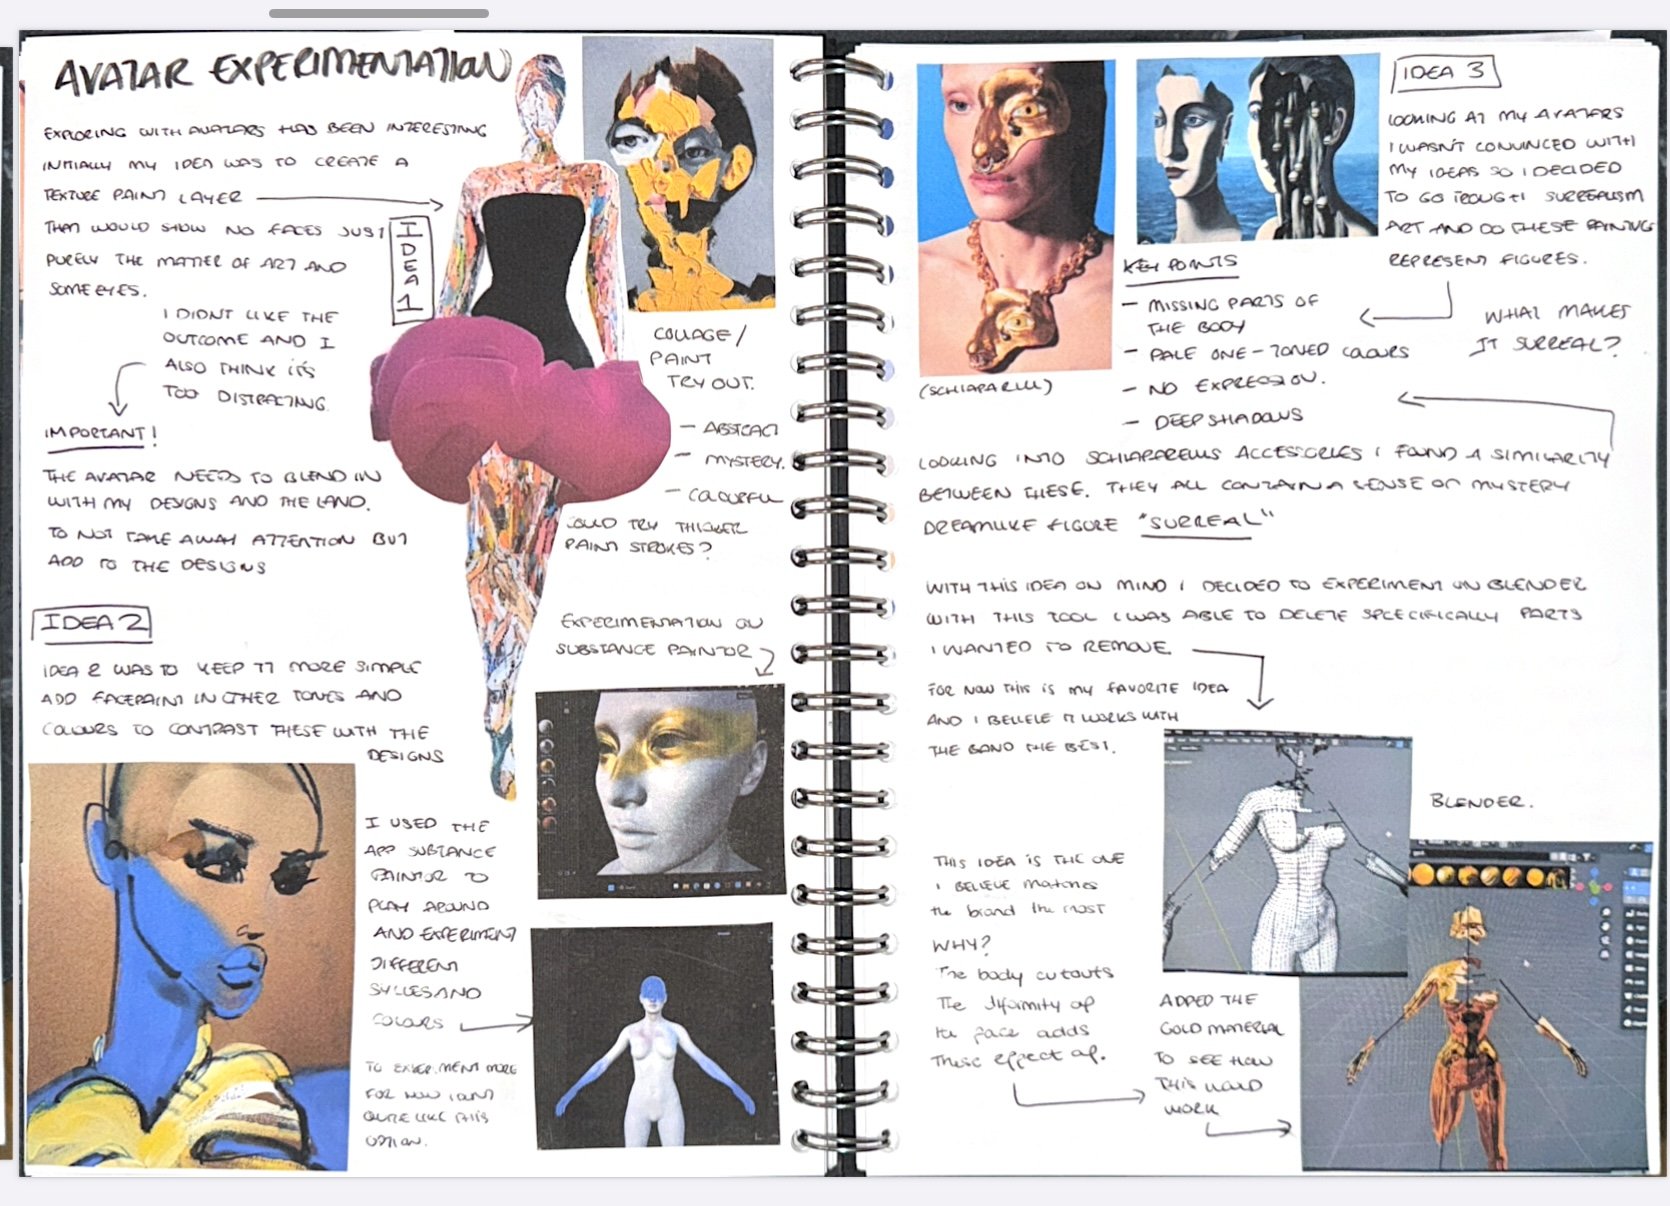 AVATAR EXPERIMENTATION
EXPLORING WITH AVATARS HAS BEEN INTERESTING
INITIALLY MY IDEA WAS TO CREATE A
TEXTURE PAINT LAYER
THAT WOULD SHOW NO FACES JUST
PURELY THE MATTER OF ART AND
SOME EYES.
IDEA 1
I DIDNT LIKE THE
OUTCOME AND I
ALSO THINK IT'S
TOO DISTRACTING.
IMPORTANT!
THE AVATAR NEEDS TO BLEND IN
WITH MY DESIGNS AND THE LAND.
TO NOT TAKE AWAY ATTENTION BUT
ADD TO THE DESIGNS
COLLAGE/
PAINT
TRY OUT.
- ABSTRACT
- MYSTERY.
- COLOURFUL
COULD TRY THICKER
PAINT STROKES?
IDEA 2
IDEA 2 WAS TO KEEP IT MORE SIMPLE
ADD FACEPAINT IN OTHER TONES AND
COLOURS TO CONTRAST THESE WITH THE
DESIGNS
EXPERIMENTATION ON
SUBSTANCE PAINTOR
I USED THE
APP SUBTANCE
PAINTOR TO
PLAY AROUND
AND EXPERIMENT
DIFFERENT
STYLES AND
COLOURS
TO EXPERIMENT MORE
FOR NOW I DNT
QUITE LIKE THIS
OPTION.
(SCHIAPARELLI)
IDEA 3
LOOKING AT MY AVATARS
I WASN'T CONVINCED WITH
MY IDEAS SO I DECIDED
TO GO TROUGH SURREALISM
ART AND OO THESE PAINTINGS
REPRESENT FIGURES.
WHAT MAKES
IT SURREAL?
KEY POINTS
- MISSING PARTS OF
THE BODY
- PALE ONE-TONED COLOURS
- NO EXPRESSION.
- DEEP SHADOWS
LOOKING INTO SCHIAPARELLIS ACCESSORIES I FOUND A SIMILARITY
BETWEEN THESE. THEY ALL CONTAIN A SENSE OF MYSTERY
DREAMLIKE FIGURE "SURREAL"
WITH THIS IDEA ON MIND I DECIDED TO EXPERIMENT ON BLENDER
WITH THIS TOOL I WAS ABLE TO DELETE SPECIFICALLY PARTS
I WANTED TO REMOVE.
FOR NOW THIS IS MY FAVORITE IDEA
AND I BELIEVE IT WORKS WITH
THE BAND THE BEST.
BLENDER.
THIS IDEA IS THE ONE
I BELIEVE MATCHES
the brand the MOST
WHY?
The body cutouts
The difformity of
the face adds
these effect of.
ADDED THE
GOLD MATERIAL
TO SEE HOW
THIS WOULD
WORK